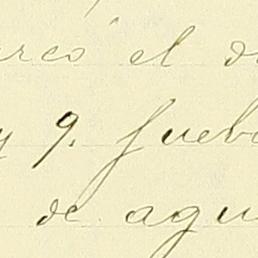 rcó el d
y 9. fueb
de agu